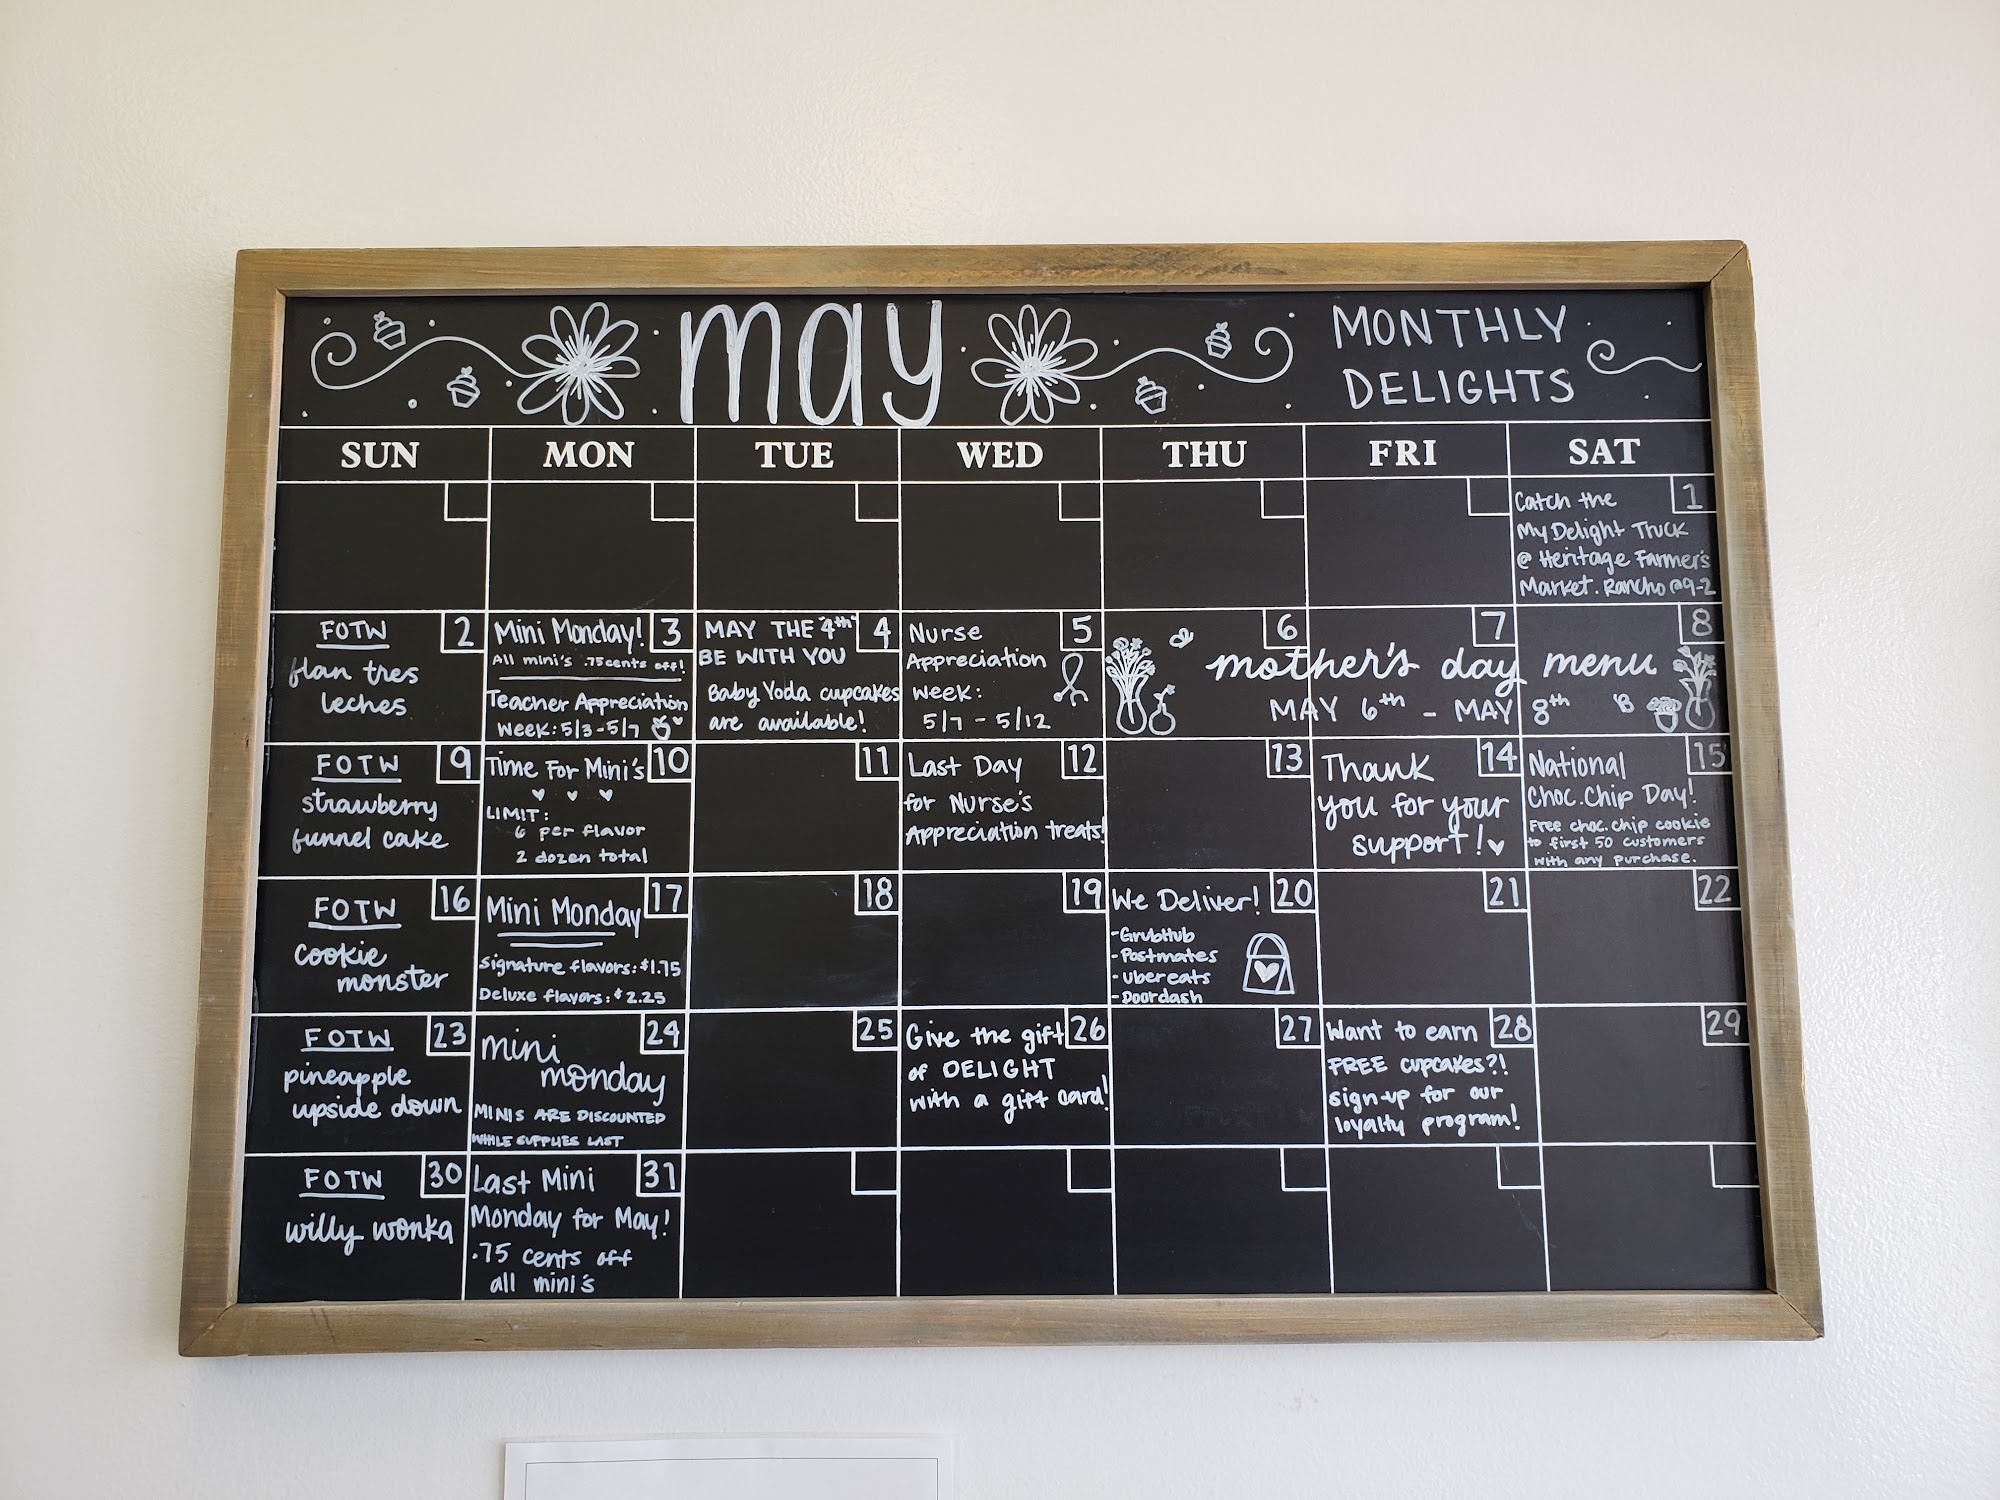 may
MONTHLY
DELIGHTS
SUN MON TUE WED THU FRI SAT
1
Catch the
My Delight Truck
@ Heritage Farmer's
Market. Rancho @9-2
2
FOTW
flan tres
leches
3
Mini Monday!
All mini's .75cents off!
Teacher Appreciation
week: 5/3-5/7
4
MAY THE "4th"
BE WITH YOU
Baby Yoda cupcakes
are available!
5
Nurse
Appreciation
week:
5/7 - 5/12
6
7
8
mother's day menu
MAY 6th - MAY 8th
9
FOTW
strawberry
funnel cake
10
Time For Mini's
LIMIT:
6 per flavor
2 dozen total
11
12
Last Day
for Nurse's
Appreciation treats!
13
14
Thank
you for your
support!
15
National
Choc.Chip Day!
Free choc.chip cookie
to first 50 customers
with any purchase.
16
FOTW
cookie
monster
17
Mini Monday
Signature flavors: $1.75
Deluxe flavors: $2.25
18
19
20
We Deliver!
-GrubHub
-Postmates
-ubereats
-Doordash
21
22
23
FOTW
pineapple
upside down
24
mini
monday
MINIS ARE DISCOUNTED
WHILE SUPPLIES LAST
25
26
Give the gift
of DELIGHT
with a gift card!
27
28
Want to earn
FREE cupcakes?!
sign-up for our
loyalty program!
29
30
FOTW
willy wonka
31
Last Mini
Monday for May!
.75 cents off
all mini's